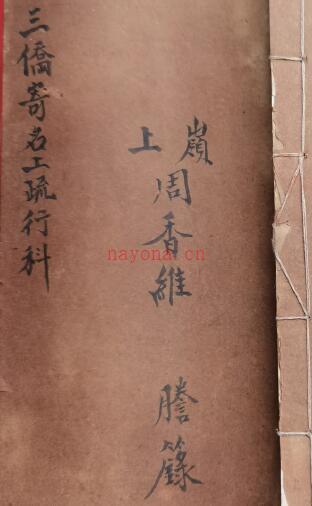 嶺上周香維 謄籙
三僑寄名上疏行科
nayona.cn